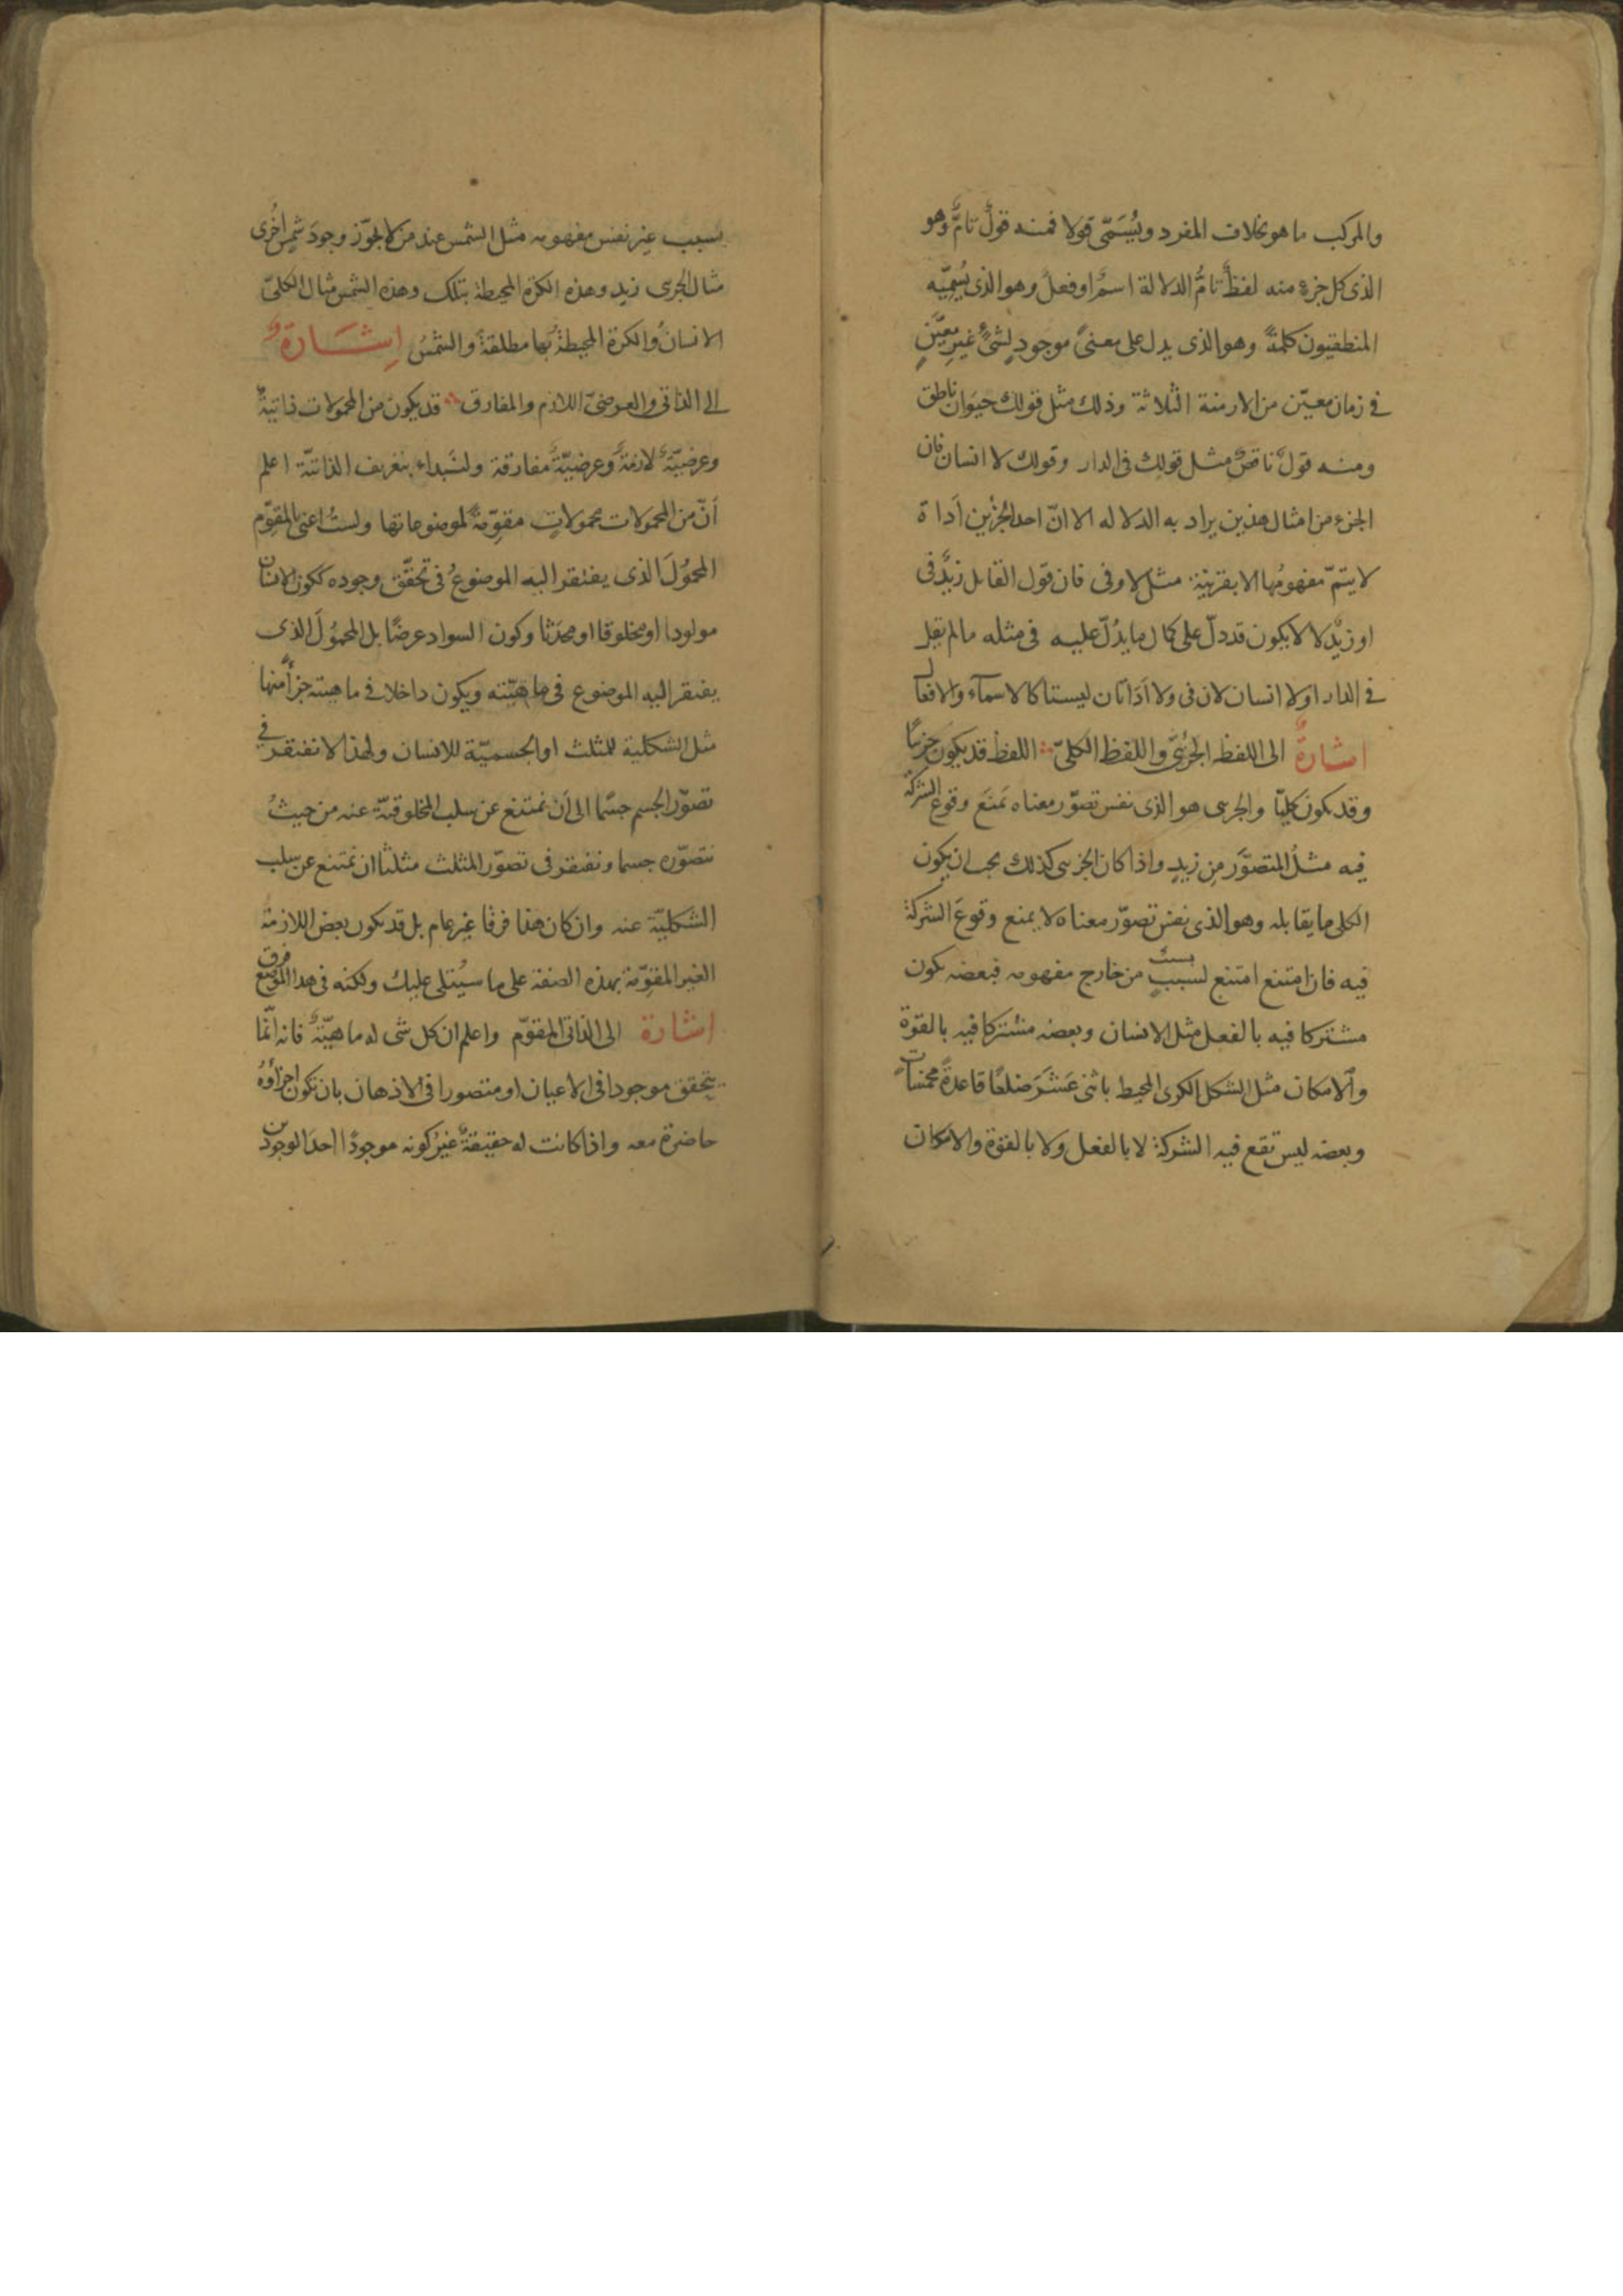 والمركب ما هو بخلاف المفرد ويُسَمّى قولا فمنه قولٌ تامٌّ وهو
الذى كل جزء منه لفظٌ تامُّ الدلالة اسمٌ او فعلٌ وهو الذى يُسمِّيه
المنطقيون كلمةً وهو الذى يدل على معنىً موجودٍ لشىءٍ غيرِ معيَّنٍ
فى زمان معيّن من الازمنة الثلاثة وذلك مثل قولك حيوان ناطق
ومنه قولٌ ناقصٌ مثل قولك فى الدار وقولك لا انسان فان
الجزء من امثال هذين يراد به الدلاله الا انّ احد الجزْين أداة
لا يتمّ مفهومُها الا بقرينة مثل لا وفى فان قول القايل زيدٌ فى
او زيدٌ لا لا يكون قد دلّ على كمال ما يدُلّ عليه فى مثله ما لم يقل
فى الدار او لا انسان لان فى ولا أدَاتان ليستا كالاسمآء والافعال
اشارةٌ الى اللفظ الجزئىّ واللفظ الكلىّ اللفظ قد يكون جزئيًا
وقد يكون كليّا والجزىى هو الذى نفس تصوّر معناه يَمنَع وقوع الشركة
فيه مثلُ المتصوَّر مِن زيدٍ واذا كان الجزىى كذلك يجب ان يكون
الكلى ما يقابله وهو الذى نفس تصوّر معناه لا يمنع وقوعَ الشركة
فيه فان امتنع امتنع لسببٍ من خارج مفهومه فبعضه يكون
مشتركا فيه بالفعل مثل الانسان وبعضه مشتركا فيه بالقوة
والامكان مثل الشكل الكرى المحيط باثنى عَشَرَ ضلعًا قاعدةً مخمّسات
وبعضه ليس تقع فيه الشركة لا بالفعل ولا بالقوة والامكان
بسبب غير نفس مفهومه مثل الشمس عند من لا يجوّز وجودَ شمسٍ اخُرى
مثال الجزى زيد وهذه الكرة المحيطة بتلك وهذه الشمس مثال الكلىّ
الانسانُ والكرة المحيطةُ بها مطلقةً والشمسُ اِشَارَةٌ
الى الذاتى والعرضىّ اللازم والمفارق قد يكون من المحمولات ذاتيةٌ
وعرضيّةٌ لازمةٌ وعرضيّةٌ مفارقة ولنَبداء بتعريف الذاتيّة اعلم
أنّ من المحمولات محمولاتٍ مقوِّمةً لموضوعاتها ولستُ اعنى بالمقوِّم
المحمُولَ الذى يفتقر اليه الموضوعُ فى تحقّق وجوده ككون الانسان
مولودا او مخلوقا او محدَثا وكون السواد عرضًا بل المحمُولَ الذى
يفتقر اليه الموضوع فى ماهيّته ويكون داخلا فى ماهيته جزأً منها
مثل الشكلية للمثلث او الجسميّة للانسان ولهذا لا نفتقر فى
تصوّر الجسم جسمًا الى أن نمتنع عن سلب المخلوقيّة عنه من حيثُ
نتصوّره جسما ونفتقر فى تصوّر المثلث مثلثًا ان نمتنع عن سلب
الشكليّة عنه وان كان هذا فرقًا غير عام بل قد يكون بعض اللازمة
الغير المقوِّمة بهذه الصفة على ما سيُتلى عليك ولكنه فى هذا الموضع فرق
اشارة الى الذاتى المقوّم واعلم ان كل شى له ماهيّةٌ فانه انّما
يتحقق موجودا فى الاعيان او متصورا فى الاذهان بان تكون اجزاؤهُ
حاضرة معه واذا كانت له حقيقةٌ غيرُ كونه موجودًا احدَ الوجودين